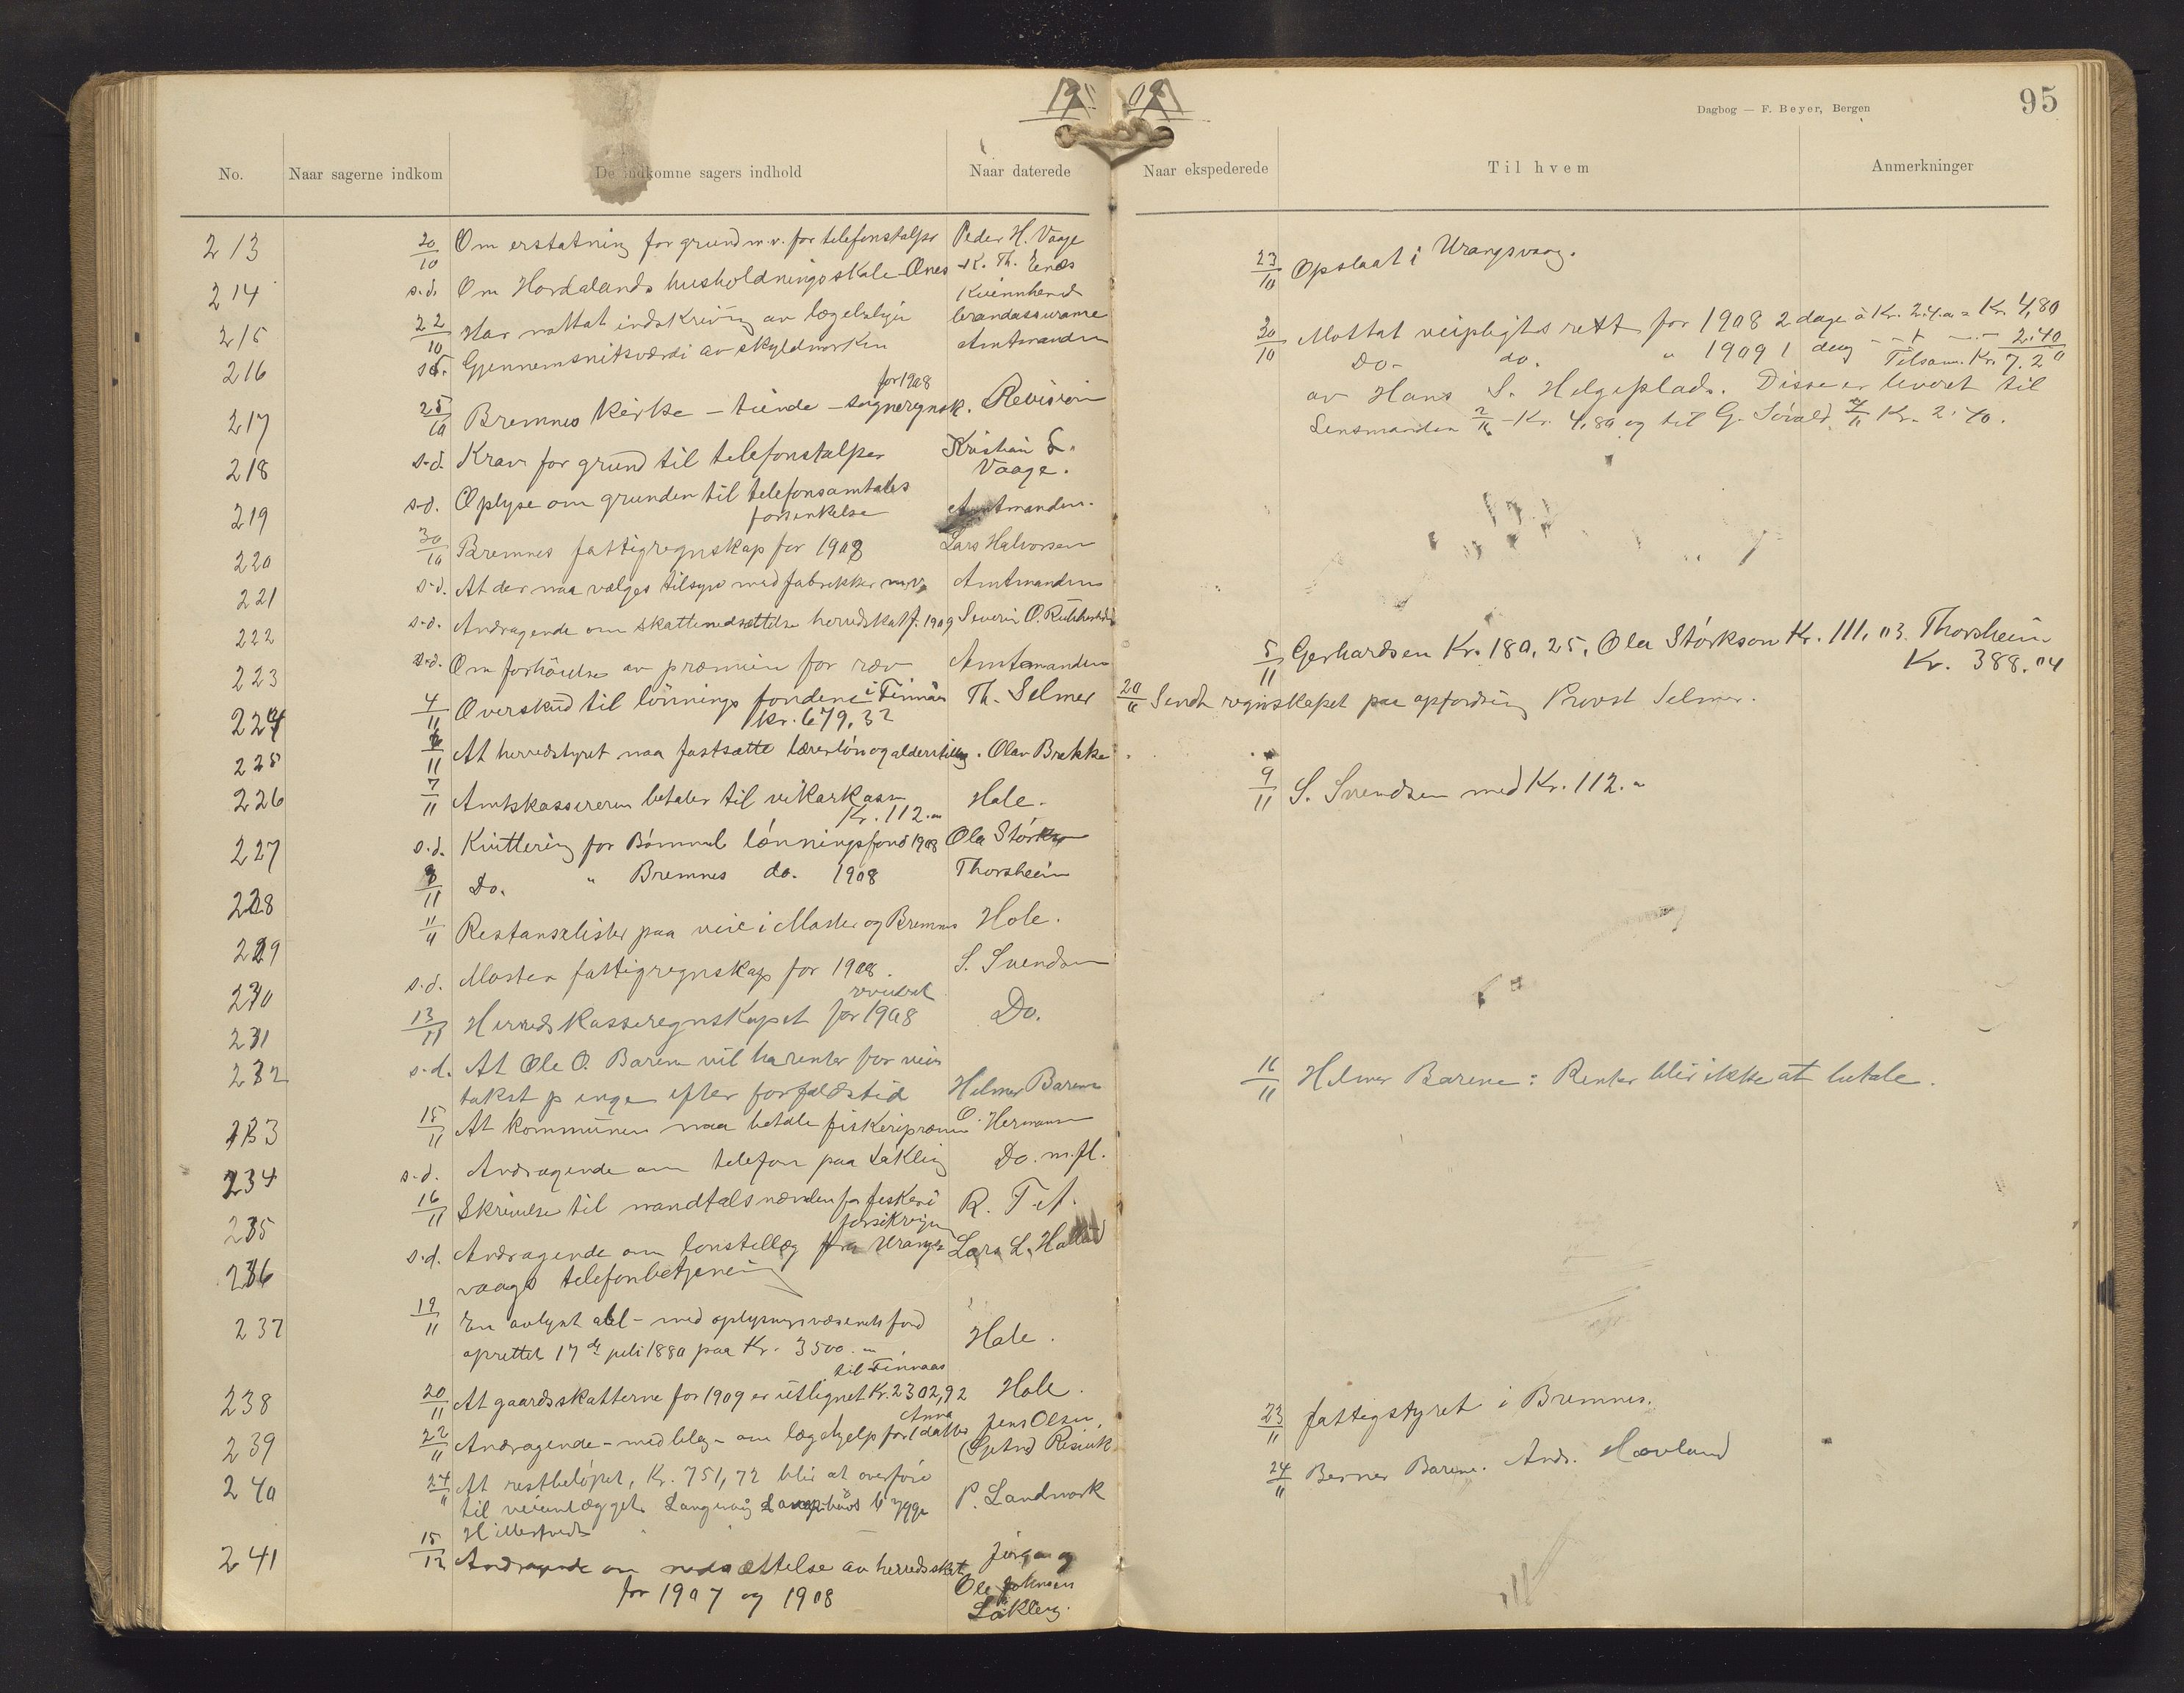 Dagbog — F. Beyer, Bergen
95
No.
Naar sagerne indkom
De indkomne sagers indhold
Naar daterede
Naar ekspederede
Til hvem
Anmerkninger
213 20/10 Om erstatning for grund m.v. for telefonstolper Peder H. Vaage
214 s.d. Om Hordalands husholdningsskole Ænes K. Th. Enes
Kvinnherad
215 22/10 Har mottat indskrivning av lægebolign Brandassurance
216 s.d. Gjennemsnitsværdi av skyldmarken Amtmanden
for 1908
217 25/10 Bremnes kirke - tiende - sogneregnsk. Revision
218 s.d. Krav for grund til telefonstolper Kristian L.
Vaage.
219 s.d. Oplyse om grunden til telefonsamtales Amtmanden.
forsinkelse
220 30/10 Bremnes fattigregnskap for 1908 Lars Halvorsen
221 s.d. At der maa vælges tilsyn med fabrikker m.v. Amtmanden
222 s.d. Andragende om skattenedsættelse herredskat f. 1909 Severin O.
223 s.d. Om forhöielse av præmien for ræv Amtmanden
224 4/11 Overskud til lönnings fondene i Finnaas Th. Selmer
Kr. 679,32
225 6/11 At herredstyret maa fastsætte lærerlön og alderstillæg. Olav Brekke
226 7/11 Amtskassereren betaler til vikarkassen Hole.
Kr. 112.-
227 s.d. Kvittering for Bömmel lönningsfond 1908 Ola Störkson
228 8/11 Do. " Bremnes do. 1908 Thorsheim
229 11/11 Restanselister paa veie i Moster og Bremnes Hole.
230 s.d. Moster fattigregnskap for 1908. S. Svendsen
revideret
231 13/11 Herredskasseregnskapet for 1908 Do.
232 s.d. At Ole O. Barene vil ha renter for vein
takst penge efter forfaldstid Helmer Barene
233 15/11 At kommunen maa betale fiskeripræmie O. Hermansen
234 s.d. Andragende om telefon paa Lökling Do. m.fl.
235 16/11 Skrivelse til mandtalsnævnden for fiskeri R. T. A.
forsikring
236 s.d. Andragende om lönstillæg fra Urangs Lars L.
vaags telefonbetjening
237 19/11 En avlyst obl - med oplysningsvæsenets fond
oprettet 17de juli 1880 paa Kr. 3500.- Hole.
til Finnaas
238 20/11 At gaardsskatterne for 1909 er utlignet Kr. 2302,92 Hole.
Anna
239 22/11 Andragende - med bileg - om lægehjelp for datter Jens Olsen,
240 24/11 At restbelöpet, Kr. 751,72 blir at overföre
til veianlægget Langevaag P. Landmark
241 15/12 Andragende om nedsættelse av herredsskat Jörgen og
for 1907 og 1908 Ole Johnsen
Lökling.
23/10 Opslaat i Urangsvaag.
30/10 Mottat veipligtsrett for 1908 2 dage à Kr. 2.40 = Kr. 4,80
Do- do. " 1909 1 dag - - - 2.40
Tilsam. Kr. 7.20
av Hans S. Helgeplads. Disse er leveret til
Lensmanden 2/11 Kr. 4,80 og til G. Kr. 2.40.
5/11 Gerhardsen Kr. 180,25, Ola Störkson Kr. 111,03. Thorsheim
Kr. 388.04
20/11 Sendt regnskapet paa opfordring Provst Selmer.
9/11 S. Svendsen med Kr. 112.-
16/11 Helmer Barene: Renter blir ikke at betale.
23/11 Fattigstyret i Bremnes.
24/11 Berner Barene. Andr. Hovland